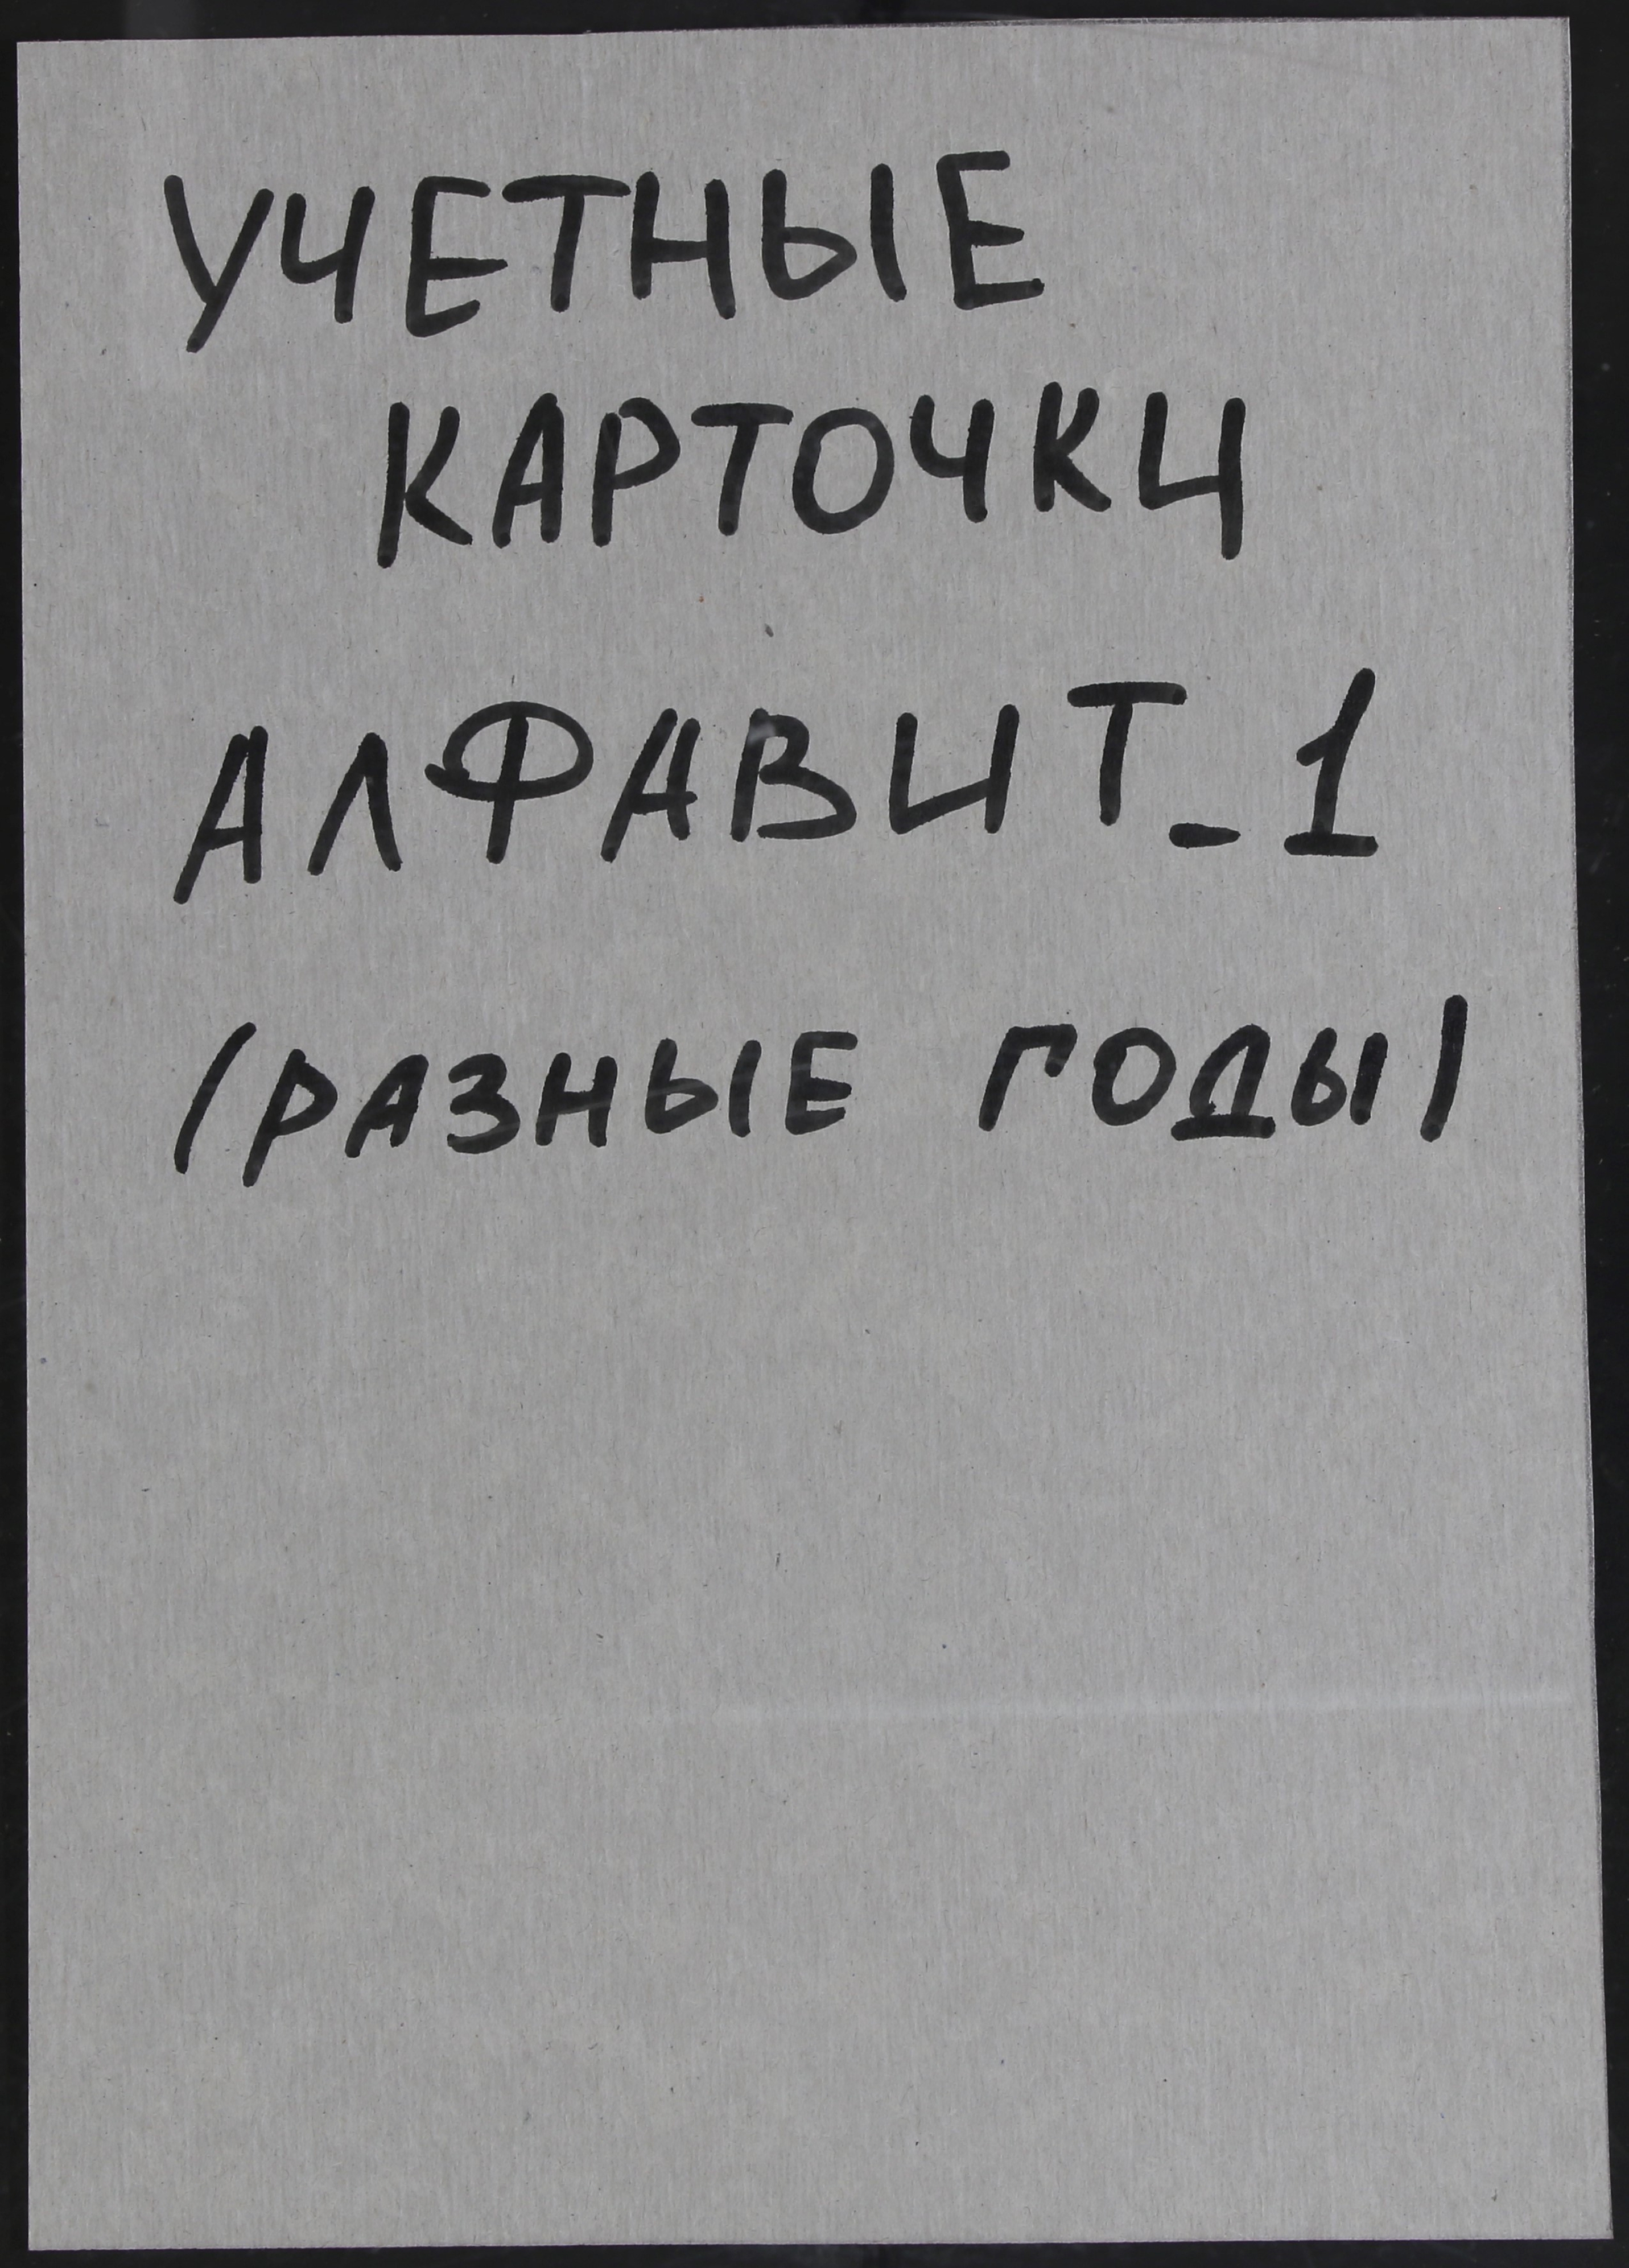 УЧЕТНЫЕ
КАРТОЧКИ
АЛФАВИТ-1
(РАЗНЫЕ ГОДЫ)